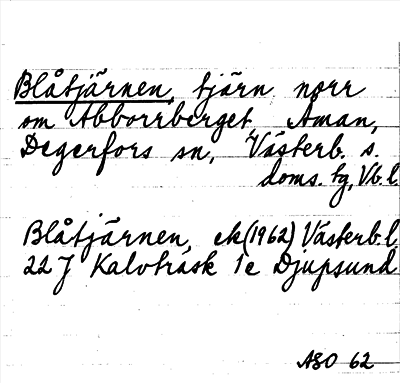 Blåtjärnen, tjärn norr
om Abborrberget Åman,
Degerfors sn, Västerb. s.
doms. tg, Vb. l.
Blåtjärnen, ek(1962) Västerb. l.
22J Kalvträsk 1e Djupsund
ASO 62